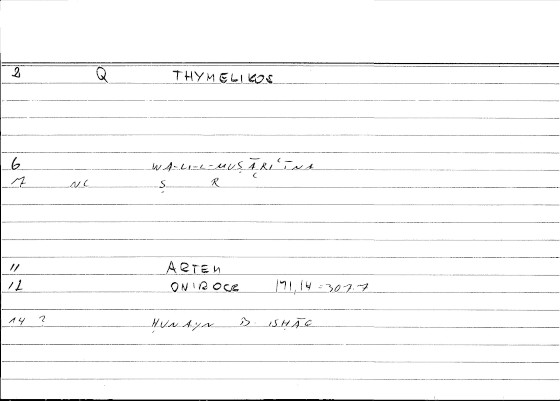 2 Q THYMELIKOS
6 WA-LI-L-MUṢĀRIʿĪNA
7 NC Ṣ R
11 ARTEM
12 ONIROCR 171,14 = 307.7
14 ? ḤUNAYN B. ISḤĀQ